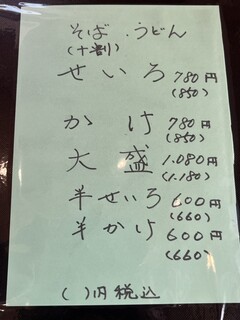 そば・うどん
(十割)
せいろ 780円
(850)
かけ 780円
(850)
大盛 1.080円
(1.180)
半せいろ 600円
(660)
半かけ 600円
(660)
( )内税込